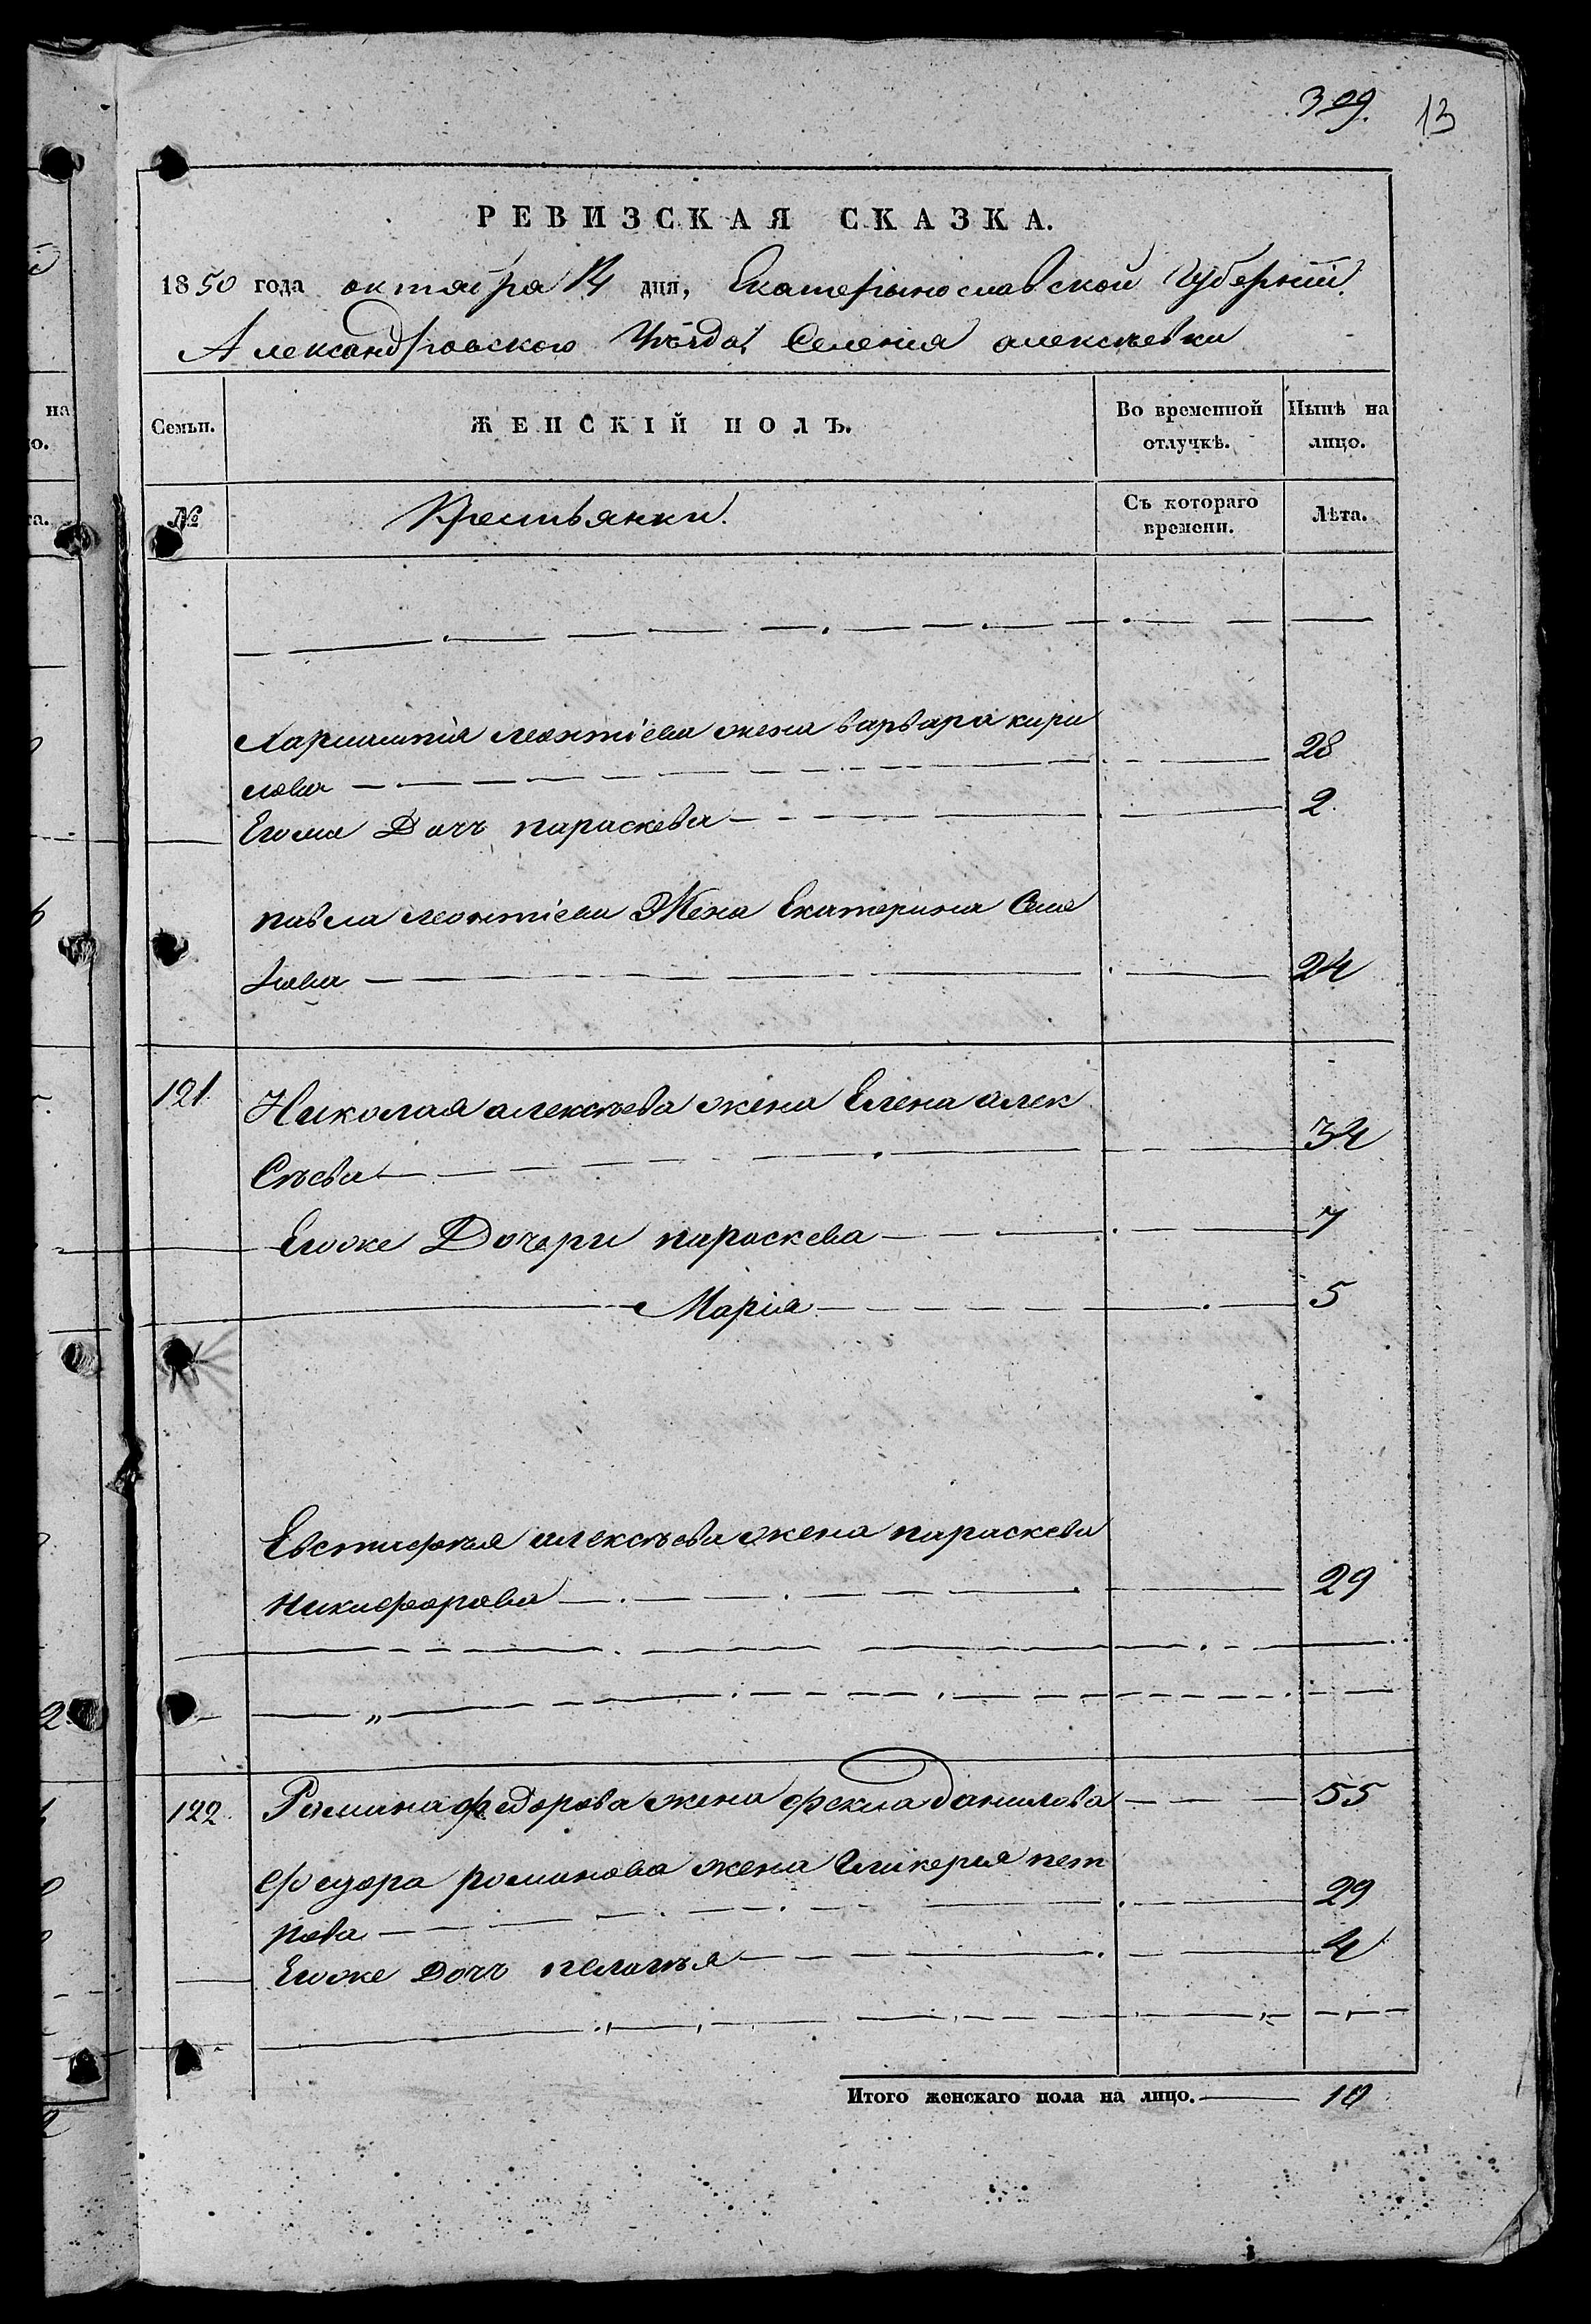 309. 13
РЕВИЗСКАЯ СКАЗКА.
1850 года октября 14 дня, Екатеринославской Губерніи
Александровского Уѣзда, Селенія алексѣевки
Семьи. ЖЕНСКІЙ ПОЛЪ. Во временной отлучкѣ. Нынѣ на лицо.
№ Крестьянки. Съ котораго времени. Лѣта.
на
о.
та.
Леонтіева жена варвара кири
лова 28
Егоже Дочь параскева 2
павла леонтіева Жена Екатерина Семе
нова 24
121 Николая алексѣева жена Елена алек
Сѣева 34
Егоже Дочери параскева 7
Марія 5
Евстифѣя алексѣева жена параскева
никифорова 29
122. Романа федорова жена фекла данилова 55
федора романова жена Гликерия пет
рова 29
Егоже дочь пелагѣя 4
Итого женскаго пола на лицо. 10